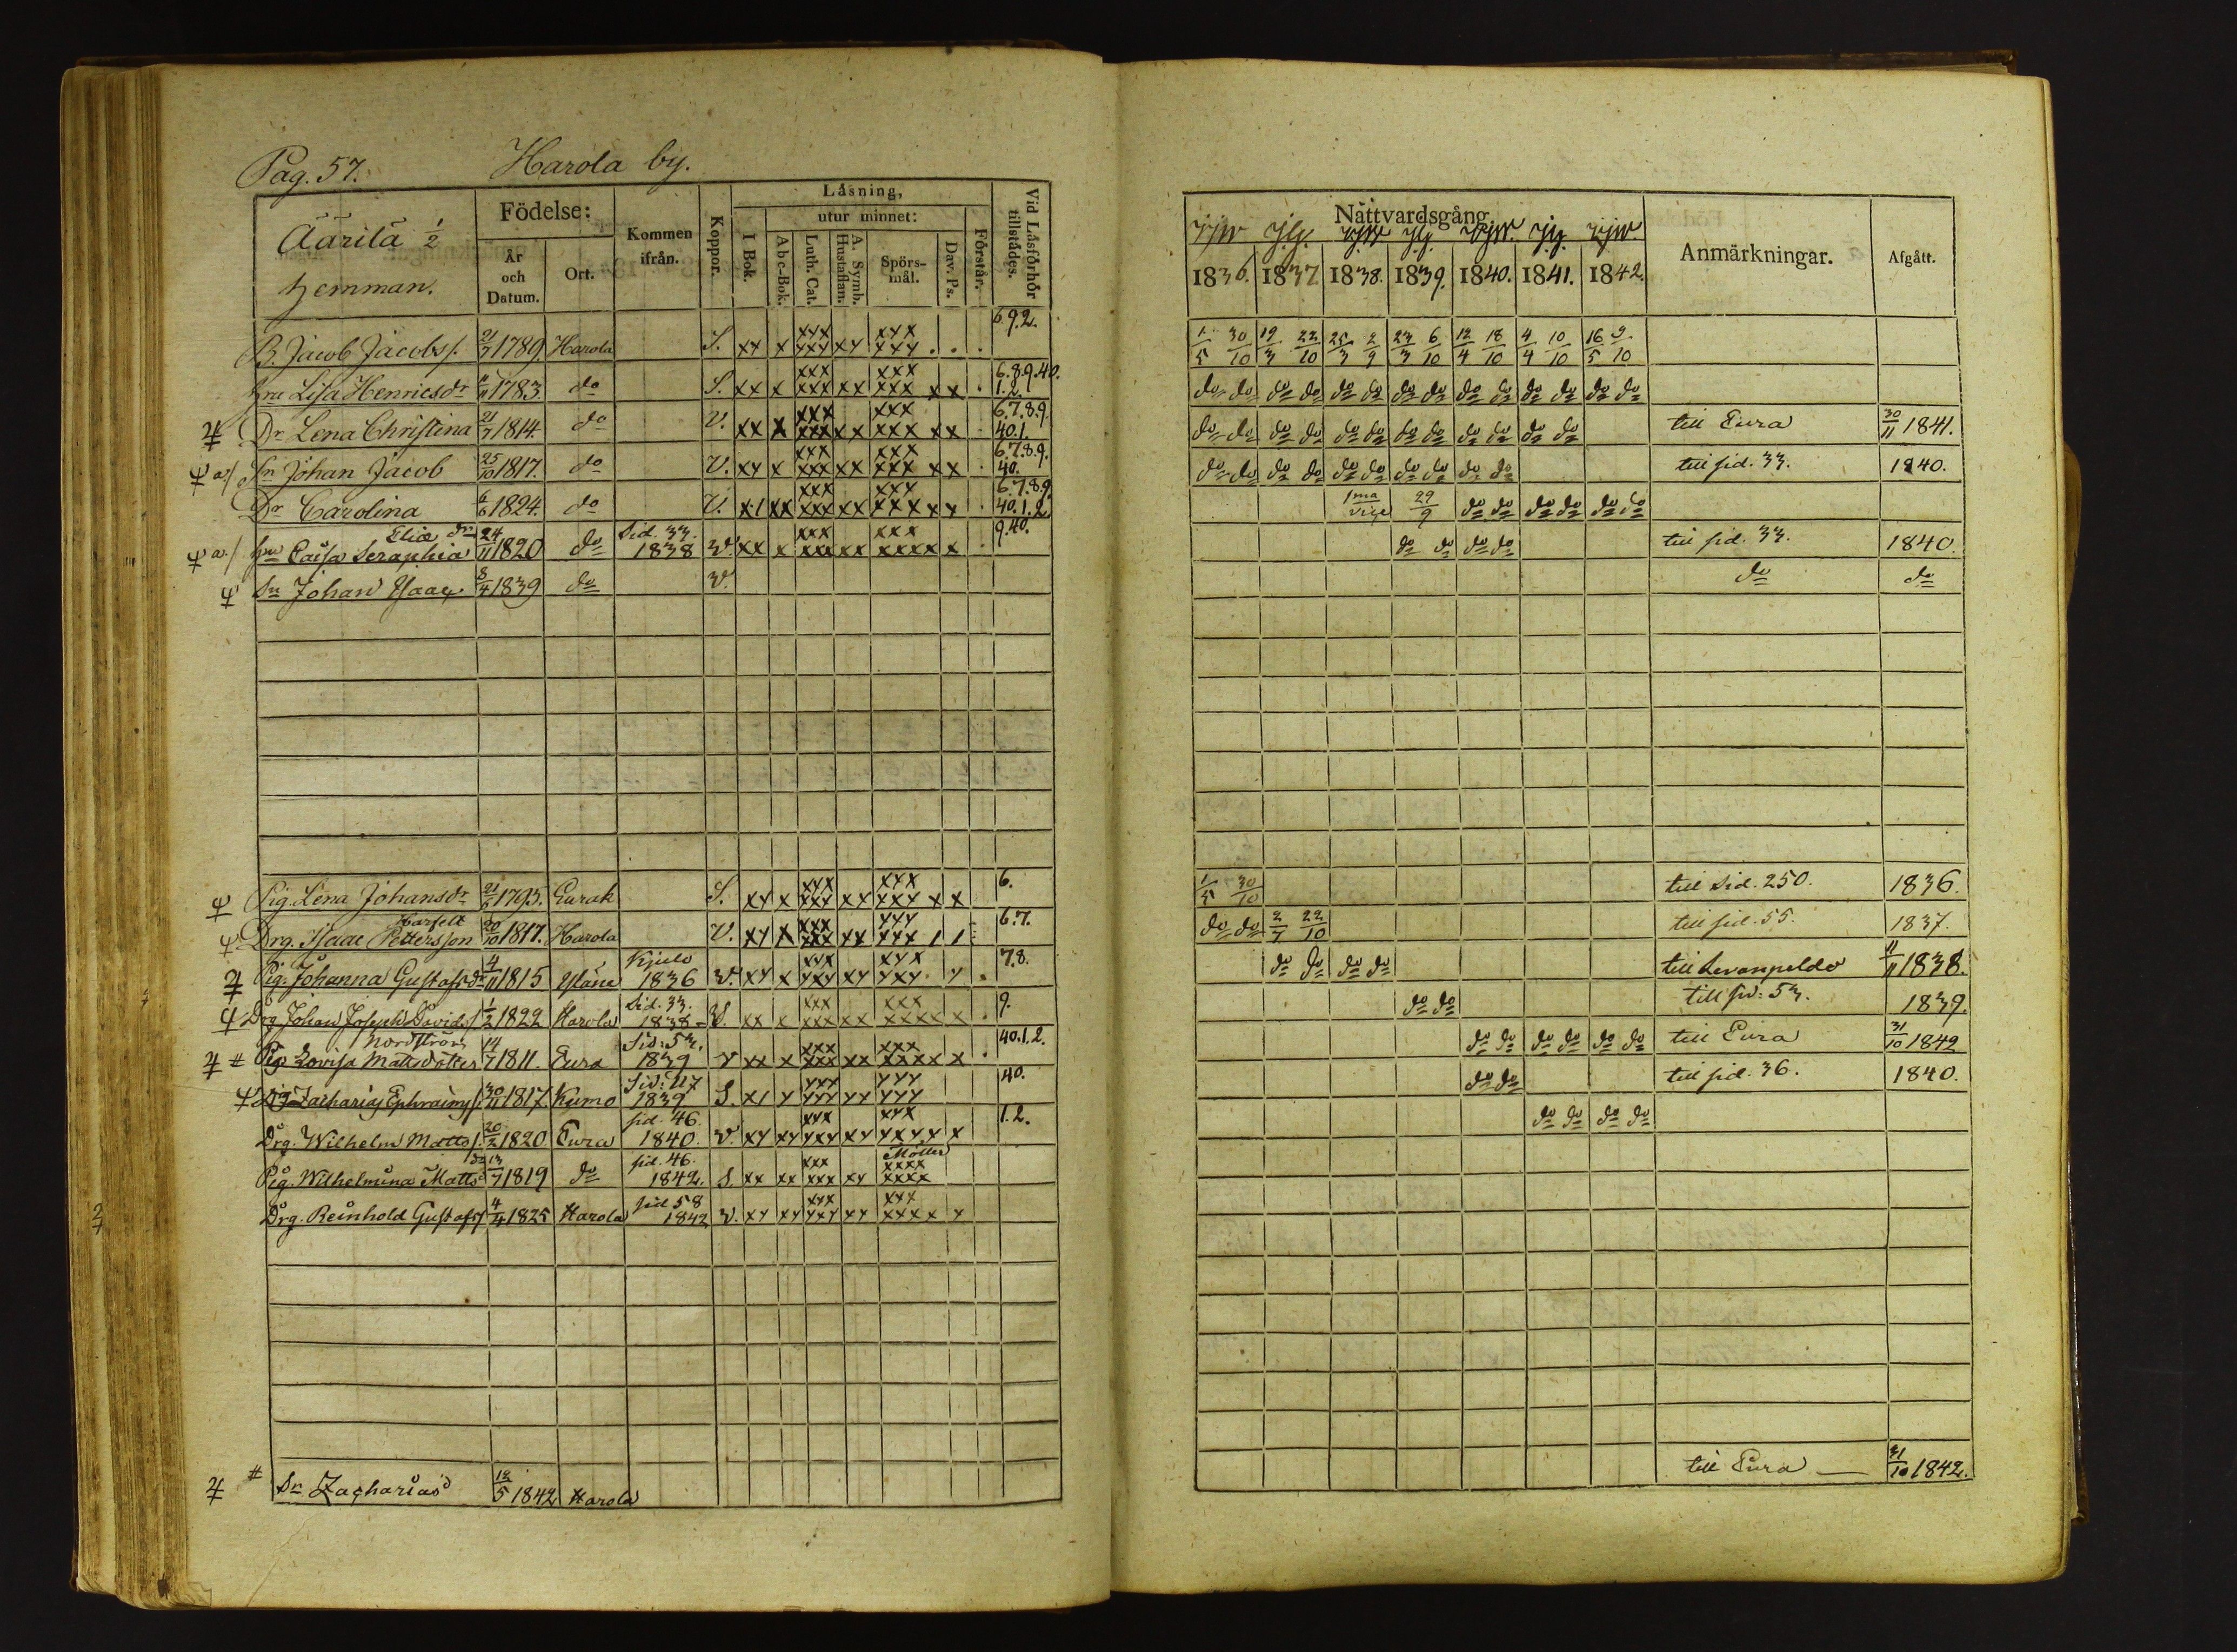 Pag. 57. Harola by.
Äärilä 1/2 hemman.
Födelse: År och Datum. Ort.
Kommen ifrån.
Koppor.
Läsning,
I Bok.
utur minnet:
Abc-Bok. Luth. Cat. A. Symb. Hustaflan. Spörsmål. Dav. Ps.
Förstår.
Vid Läsförhör tillstädes.
Nattvardsgång
1836. 1837 1838. 1839. 1840. 1841. 1842.
Anmärkningar.
Afgått.
B. Jacob Jacobss. 21/3 1789 Harola S. xx x xxx xxx xx xxx xxx . . . 6.9.2. 1/5 30/10 19/3 22/10 25/3 2/9 23/3 6/10 12/4 18/10 4/4 10/10 16/5 9/10
hru Lisa Henricsdr 1783 do S. xx x xxx xxx xx xxx xxx xx . 6.8.9.40. 1.2. do do do do do do do do do do do do do do
Dr Lena Christina 21/7 1814. do V. xx x xxx xxx xx xxx xxx xx . 6.7.8.9. 40.1. do do do do do do do do do do do do till Eura 30/11 1841.
Sn Johan Jacob 25/10 1817. do V. xx x xxx xxx xx xxx xxx xx . 6.7.8.9. 40. do do do do do do do do do do till sid. 33. 1840.
Dr Carolina 6/6 1824. do V. xx xx xxx xxx xx xxx xxx xx . 6.7.8.9. 40.1.2. 1ma 29/9 do do do do do do
hu Caisa Seraphia Eliæ dr 24/11 1820 do Sid. 33. 1838 v. xx x xxx xxx xx xxx xxxx x . 9.40. do do do do till sid. 33. 1840.
Sn Johan Isaac 8/4 1839 do v. do do
Pig. Lena Johansdr 21/6 1793. Eurak S. xx x xxx xxx xx xxx xxx xx 6. 1/5 30/10 till Sid. 250. 1836.
Drg. Isaac Pettersson Harfelt 20/10 1817. Harola V. xx x xxx xxx xx xxx xxx 6.7. do do 2/7 22/10 till sid. 55. 1837.
Pig. Johanna Gustafsdr 4/11 1815 Yläne Kjulo 1836 v. xx x xxx xxx xx xxx xxx x . 7.8. do do do do till 1838.
Drg. Johan Joseph Davids. 1/2 1822 Harola Sid. 33. 1838 V. xx x xxx xxx xx xxx xxxx x . 9. do do till sid: 53. 1839.
Pig. Lovisa Mattsdotter Nordström 14/7 1811. Eura Sid: 53. 1839 v xx x xxx xxx xx xxx xxxx x . 40.1.2. do do do do do do till Eura 31/10 1842
Drg. Zacharias Ephraims. 30/11 1817 Kumo Sid: 117 1839 S. xx x xxx xxx xx xxx xxx 40. do do till sid. 36. 1840.
Drg. Wilhelm Matts. 20/2 1820 Eura sid. 46. 1840. v. xx xx xxx xxx xx xxx xxxx x 1.2. do do do do
Pig. Wilhelmina Mattsdr 13/7 1819 do sid. 46. 1842. S. xx xx xxx xxx xx xxxx xxxx
Drg. Reinhold Gustafss. 4/4 1825 Harola sid 58 1842 v. xx xx xxx xxx xx xxx xxxx x
Sn Zacharias 12/5 1842 Harola till Eura — 31/10 1842.